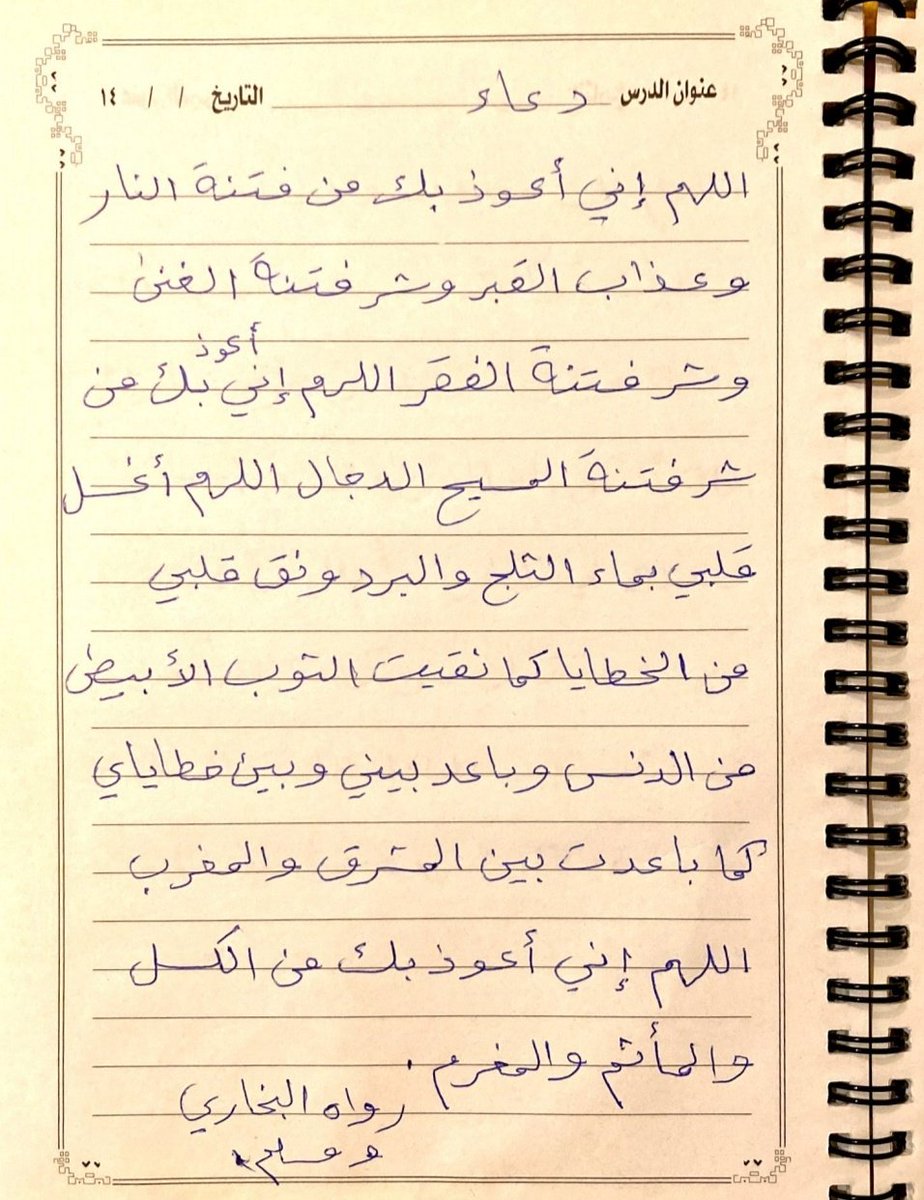 عنوان الدرس دعاء التاريخ / / ١٤
اللهم إني أعوذ بك من فتنة النار
وعذاب القبر وشر فتنة الغنى
أعوذ
وشر فتنة الفقر اللهم إني بك من
شر فتنة المسيح الدجال اللهم أغسل
قلبي بماء الثلج والبرد ونق قلبي
من الخطايا كما نقيت الثوب الأبيض
من الدنس وباعد بيني وبين خطاياي
كما باعدت بين المشرق والمغرب
اللهم إني أعوذ بك من الكسل
والمأثم والمغرم .
رواه البخاري
ومسلم